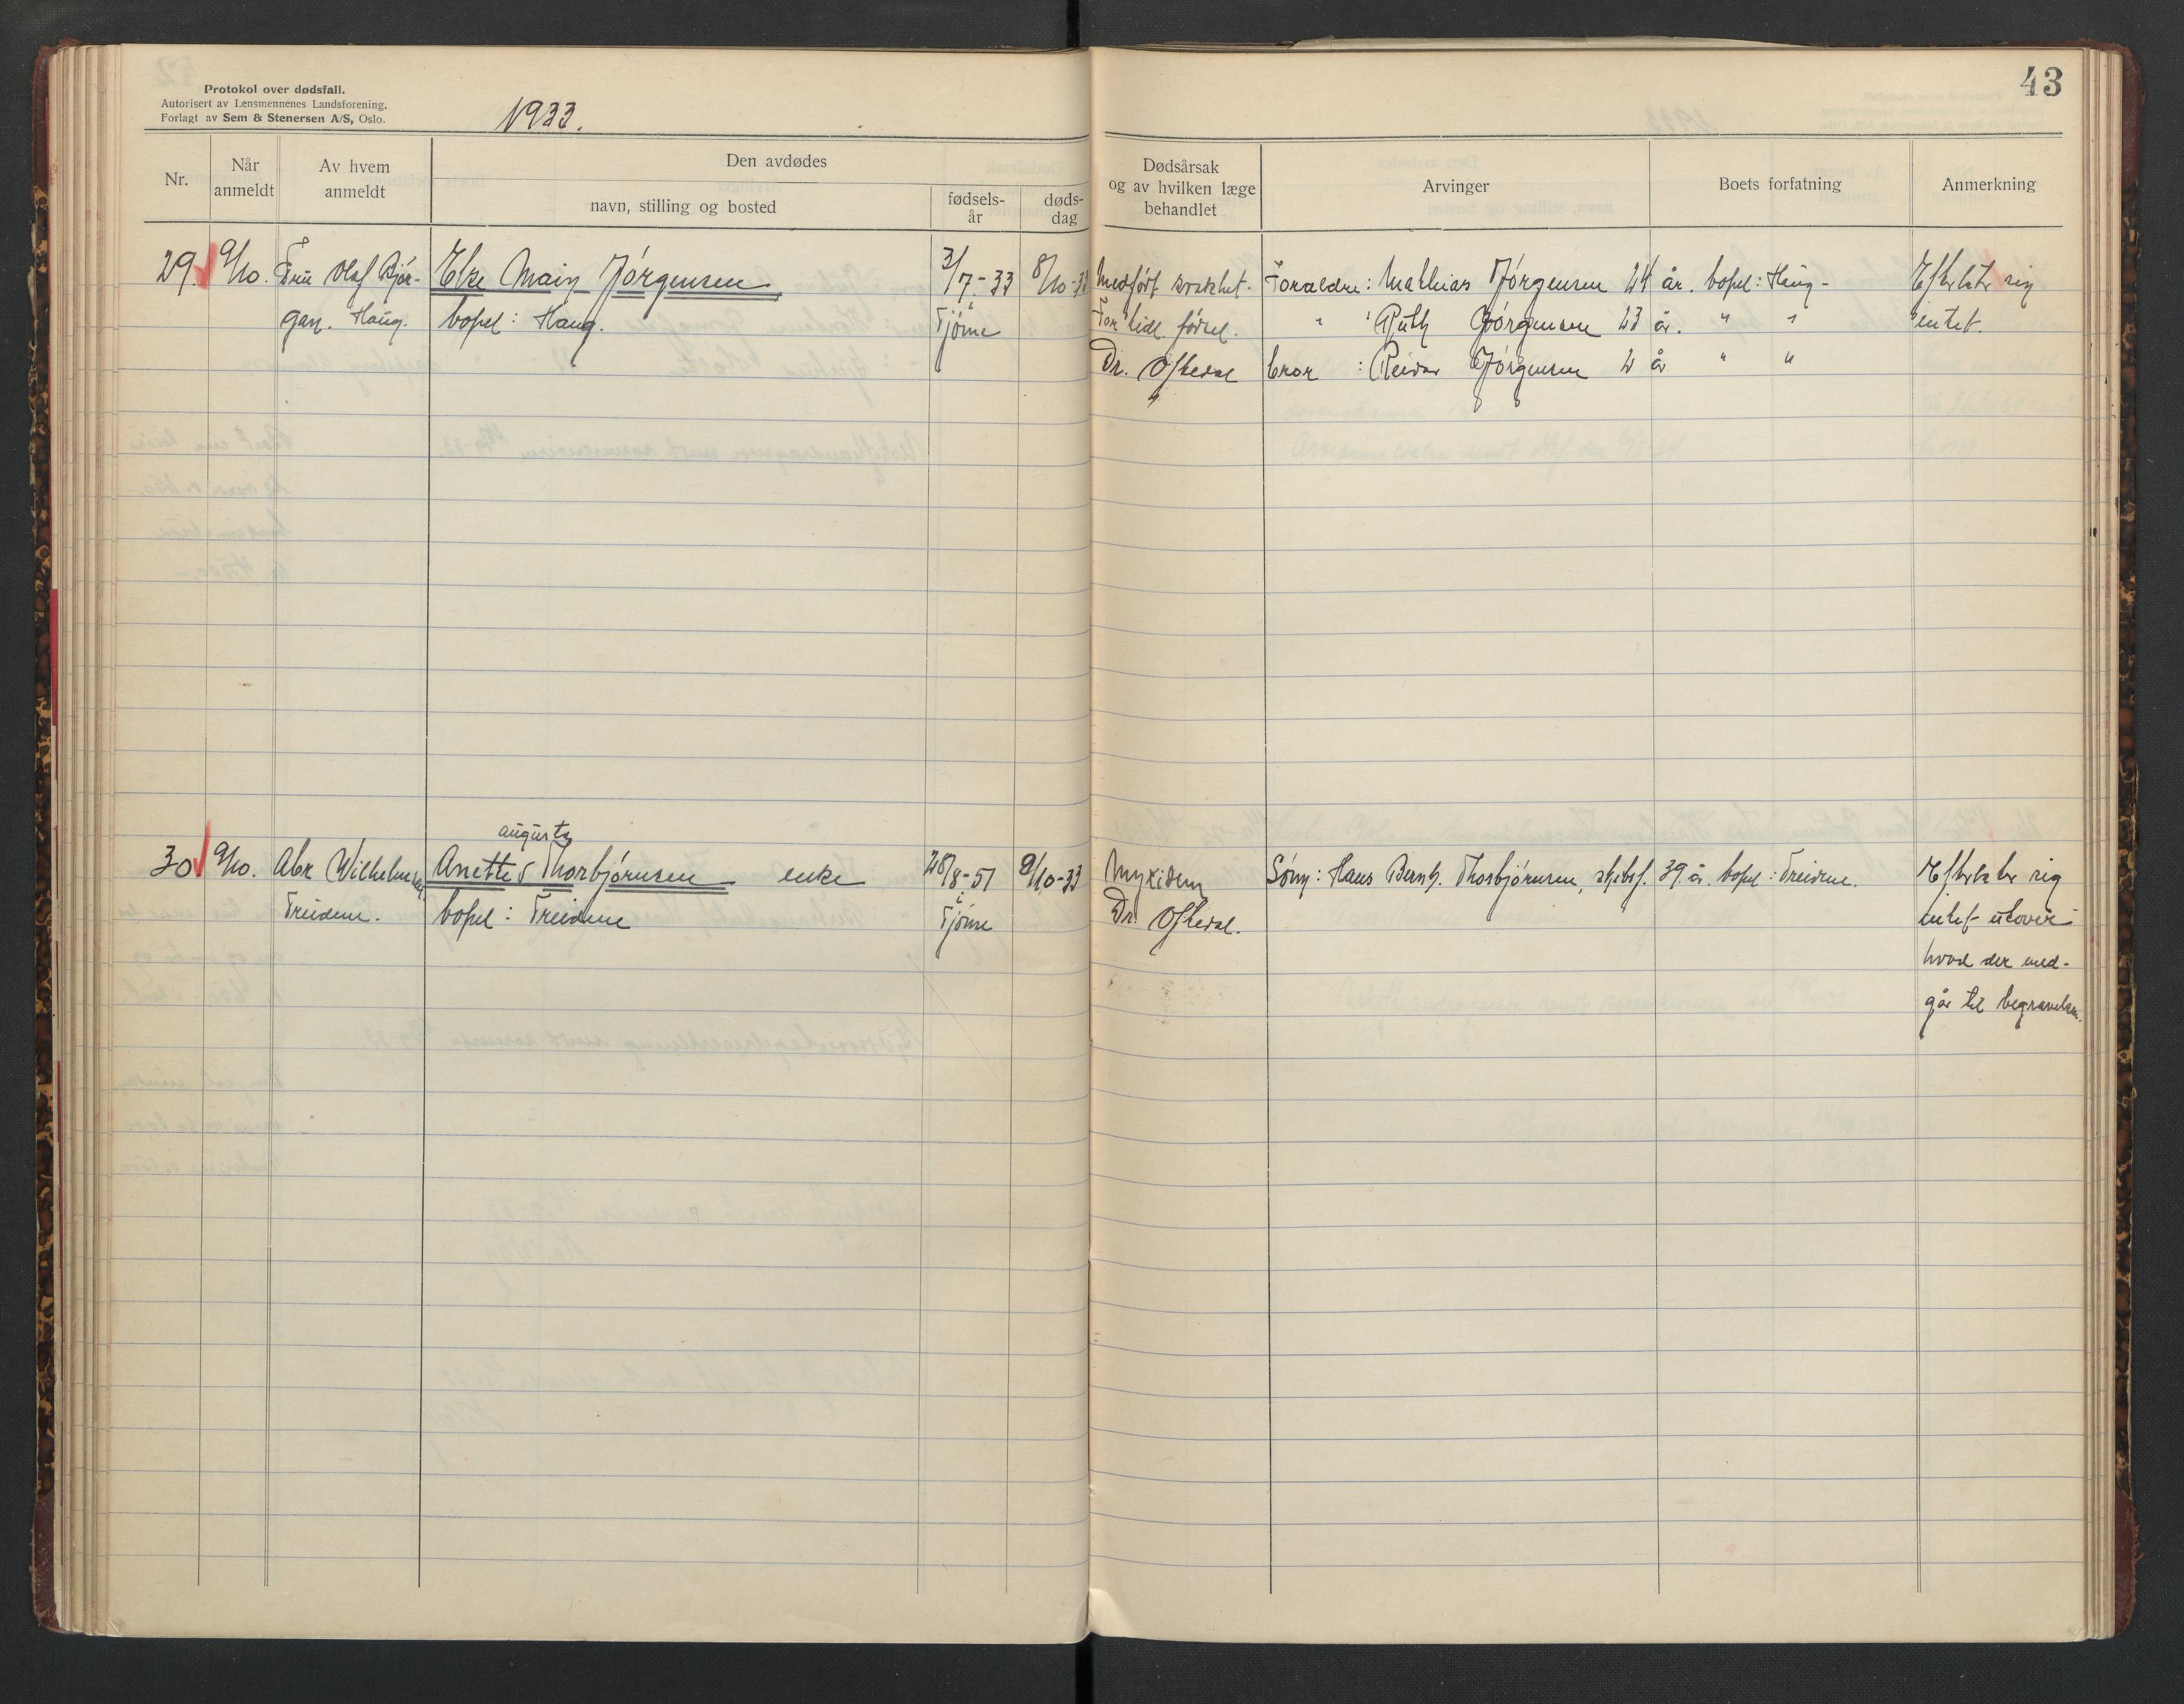 43
Protokol over dødsfall.
Autorisert av Lensmennenes Landsforening.
Forlagt av Sem & Stenersen A/S, Oslo.
1933.
Nr.
Når anmeldt
Av hvem anmeldt
Den avdødes
navn, stilling og bosted
fødsels-år
døds-dag
Dødsårsak og av hvilken læge behandlet
Arvinger
Boets forfatning
Anmerkning
29. 9/10. Fru Olaf Bjør- Else Main Jørgensen 3/7-33 8/10-33 Medfødt svakhet. Foraeldre: Mathias Jørgensen 24 år. bopel: Haug - Efterlater sig
gan. Haug. bopel: Haug. Tjøme For tidl. fødsel. " : Ruth Jørgensen 23 år. " " intet.
Dr. Oftedal bror : Reidar Jørgensen 2 år " "
augusta
30 9/10. Abr Wilhelmsen Anette Thorbjørnsen enke 28/8-51 9/10-33 Myxidem Sønn: Hans Bernh. Thorbjørnsen, 39 år. bopel: Treidene. Efterlater sig
Treidene. bopel: Treidene Tjøme Dr. Oftedal. intet utover
hvad der med-
går til begravelsen.